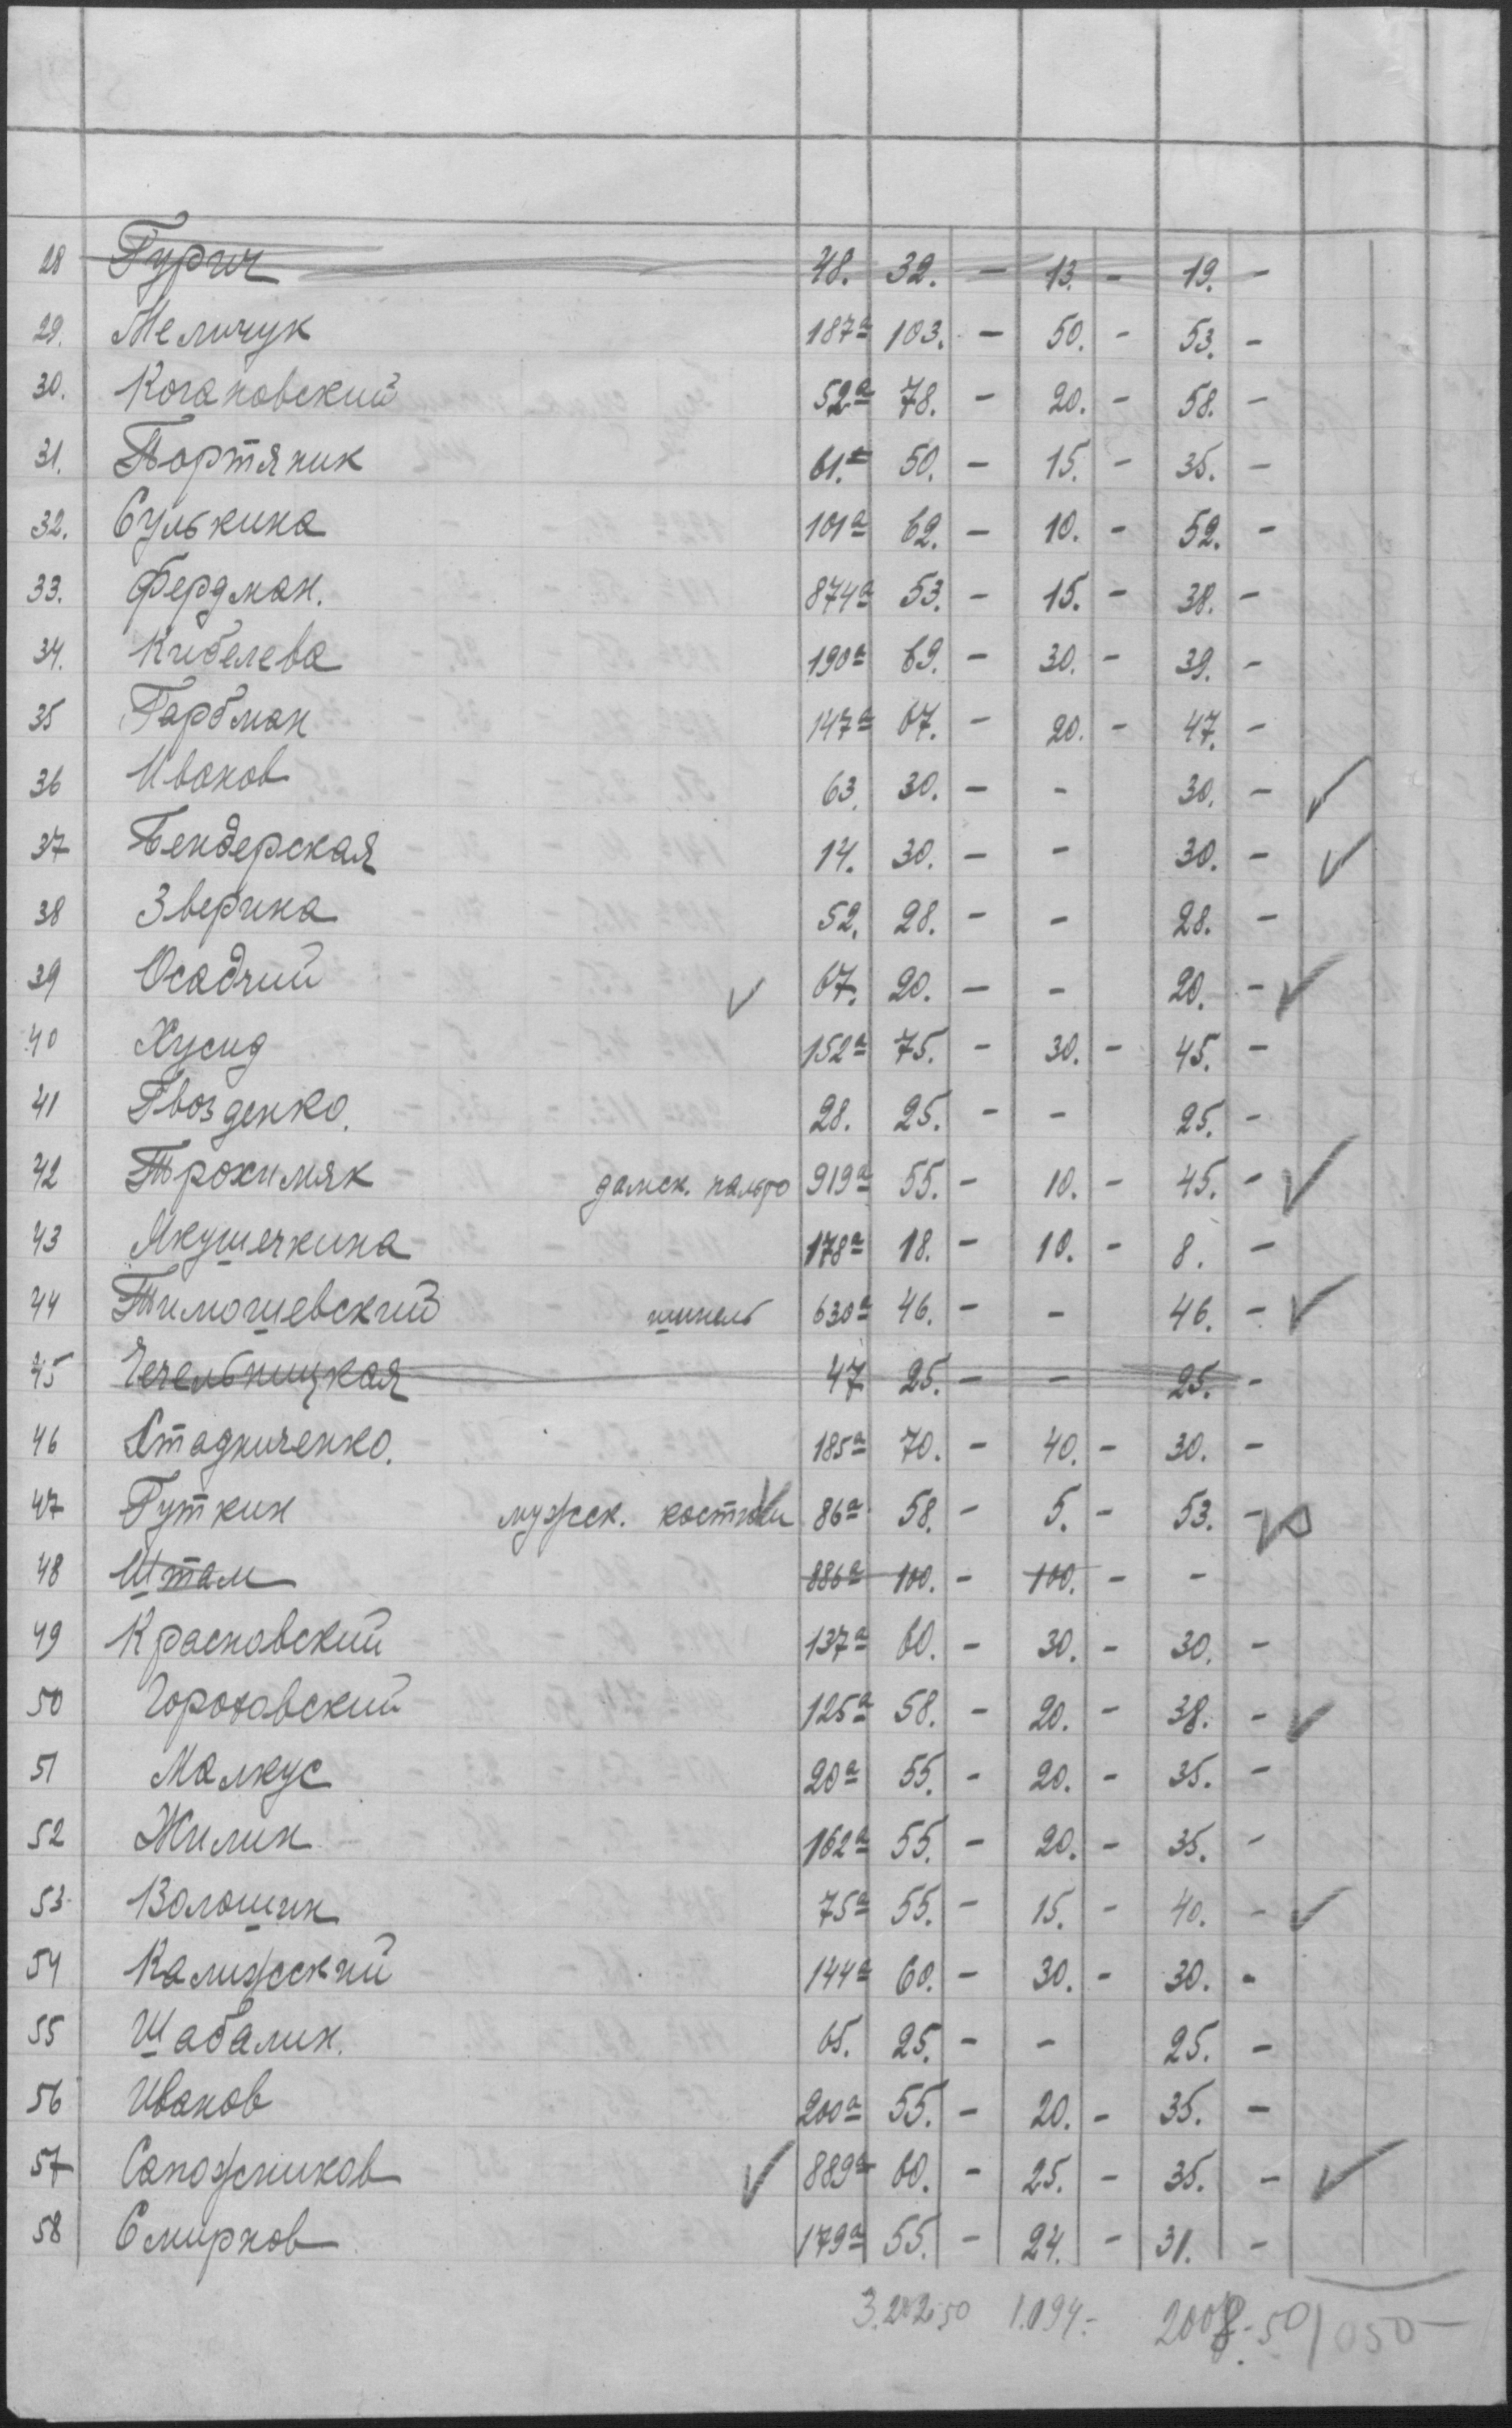 28 Гурич 48. 32. - 13. - 19. -
29. Мельчук 187а 103. - 50. - 53. -
30. Когановский 52а 78. - 20. - 58. -
31. Портяник 61.а 50. - 15. - 35. -
32. Сулькина 101а 62. - 10. - 52. -
33. Фердман. 874а 53. - 15. - 38. -
34. Кибелева 190а 69. - 30. - 39. -
35 Гарбман 147а 67. - 20. - 47. -
36 Иванов 63. 30. - - 30. - ✓
37 Бендерская 14. 30. - - 30. - ✓
38 Зверина 52. 28. - - 28. -
39 Осадчий ✓ 67. 20. - - 20. - ✓
40 Хусид 152а 75. - 30. - 45. -
41 Гвозденко. 28. 25. - - 25. -
42 Трохимяк дамск. пальто 919а 55. - 10. - 45. - ✓
43 Якушечкина 178а 18. - 10. - 8. -
44 Тимошевский шинель 630а 46. - - 46. - ✓
45 Чечельницкая 47 25. - - 25. -
46 Стадниченко. 185а 70. - 40. - 30. -
47 Гуткин мужск. костюм 86а 58. - 5. - 53. - ✓
48 Штам 886а 100. - 100. - -
49 Красновский 137а 60. - 30. - 30. -
50 Гороховский 125а 58. - 20. - 38. - ✓
51 Малкус 20а 55. - 20. - 35. -
52 Жилин 162а 55. - 20. - 35. -
53. Волошин 75а 55. - 15. - 40. - ✓
54 Калижский 144а 60. - 30. - 30. -
55 Шабалин. 65. 25. - - 25. -
56 Иванов 200а 55. - 20. - 35. -
57 Сапожников ✓ 889а 60. - 25. - 35. - ✓
58 Смирнов 179а 55. - 24. - 31. -
1.094.- 2008.-50 1050-